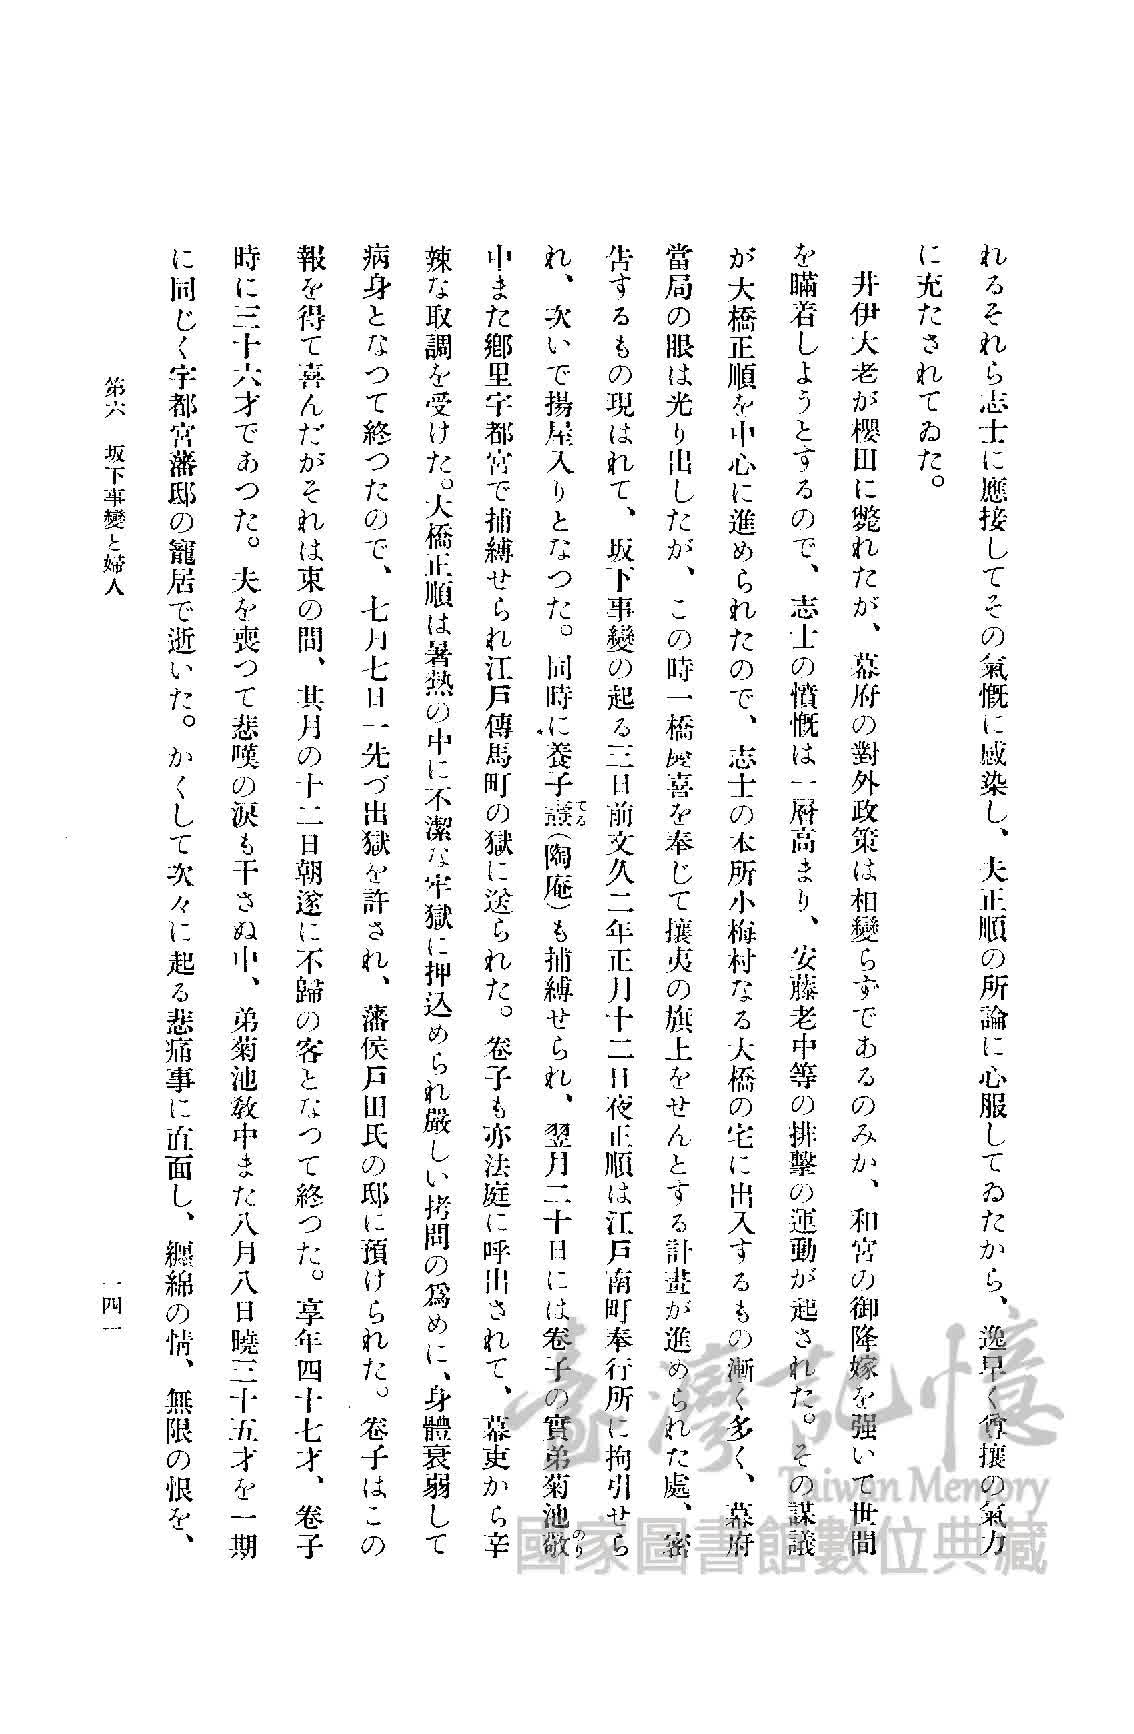 れるそれら志士に應接してその氣慨に感染し、夫正順の所論に心服してゐたから、逸早く尊攘の氣力
に充たされてゐた。
井伊大老が櫻田に斃れたが、幕府の對外政策は相變らずであるのみか、和宮の御降嫁を强いて世間
を瞞着しようとするので、志士の憤慨は一層高まり、安藤老中等の排擊の運動が起された。その謀議
が大橋正順を中心に進められたので、志士の本所小梅村なる大橋の宅に出入するもの漸く多く、幕府
當局の眼は光り出したが、この時一橋慶喜を奉じて攘夷の旗上をせんとする計畫が進められた處、密
吿するもの現はれて、坂下事變の起る三日前文久二年正月十二日夜正順は江戶南町奉行所に拘引せら
れ、次いで揚屋入りとなつた。同時に養子燾てる(陶庵)も捕縛せられ、翌月二十日には卷子の實弟菊池敎のり
中また鄕里宇都宮で捕縛せられ江戶傳馬町の獄に送られた。卷子も亦法庭に呼出されて、幕吏から辛
辣な取調を受けた。大橋正順は暑熱の中に不潔な牢獄に押込められ嚴しい拷問の爲めに、身體衰弱して
病身となつて終つたので、七月七日一先づ出獄を許され、藩侯戶田氏の邸に預けられた。卷子はこの
報を得て喜んだがそれは束の間、其月の十二日朝遂に不歸の客となつて終つた。享年四十七才、卷子
時に三十六才であつた。夫を喪つて悲嘆の淚も干さぬ中、弟菊池敎中また八月八日曉三十五才を一期
に同じく宇都宮藩邸の寵居で逝いた。かくして次々に起る悲痛事に直面し、纒綿の情、無限の恨を、
第六 坂下事變と婦人
一四一
臺灣記憶
Taiwan Memory
國家圖書館數位典藏